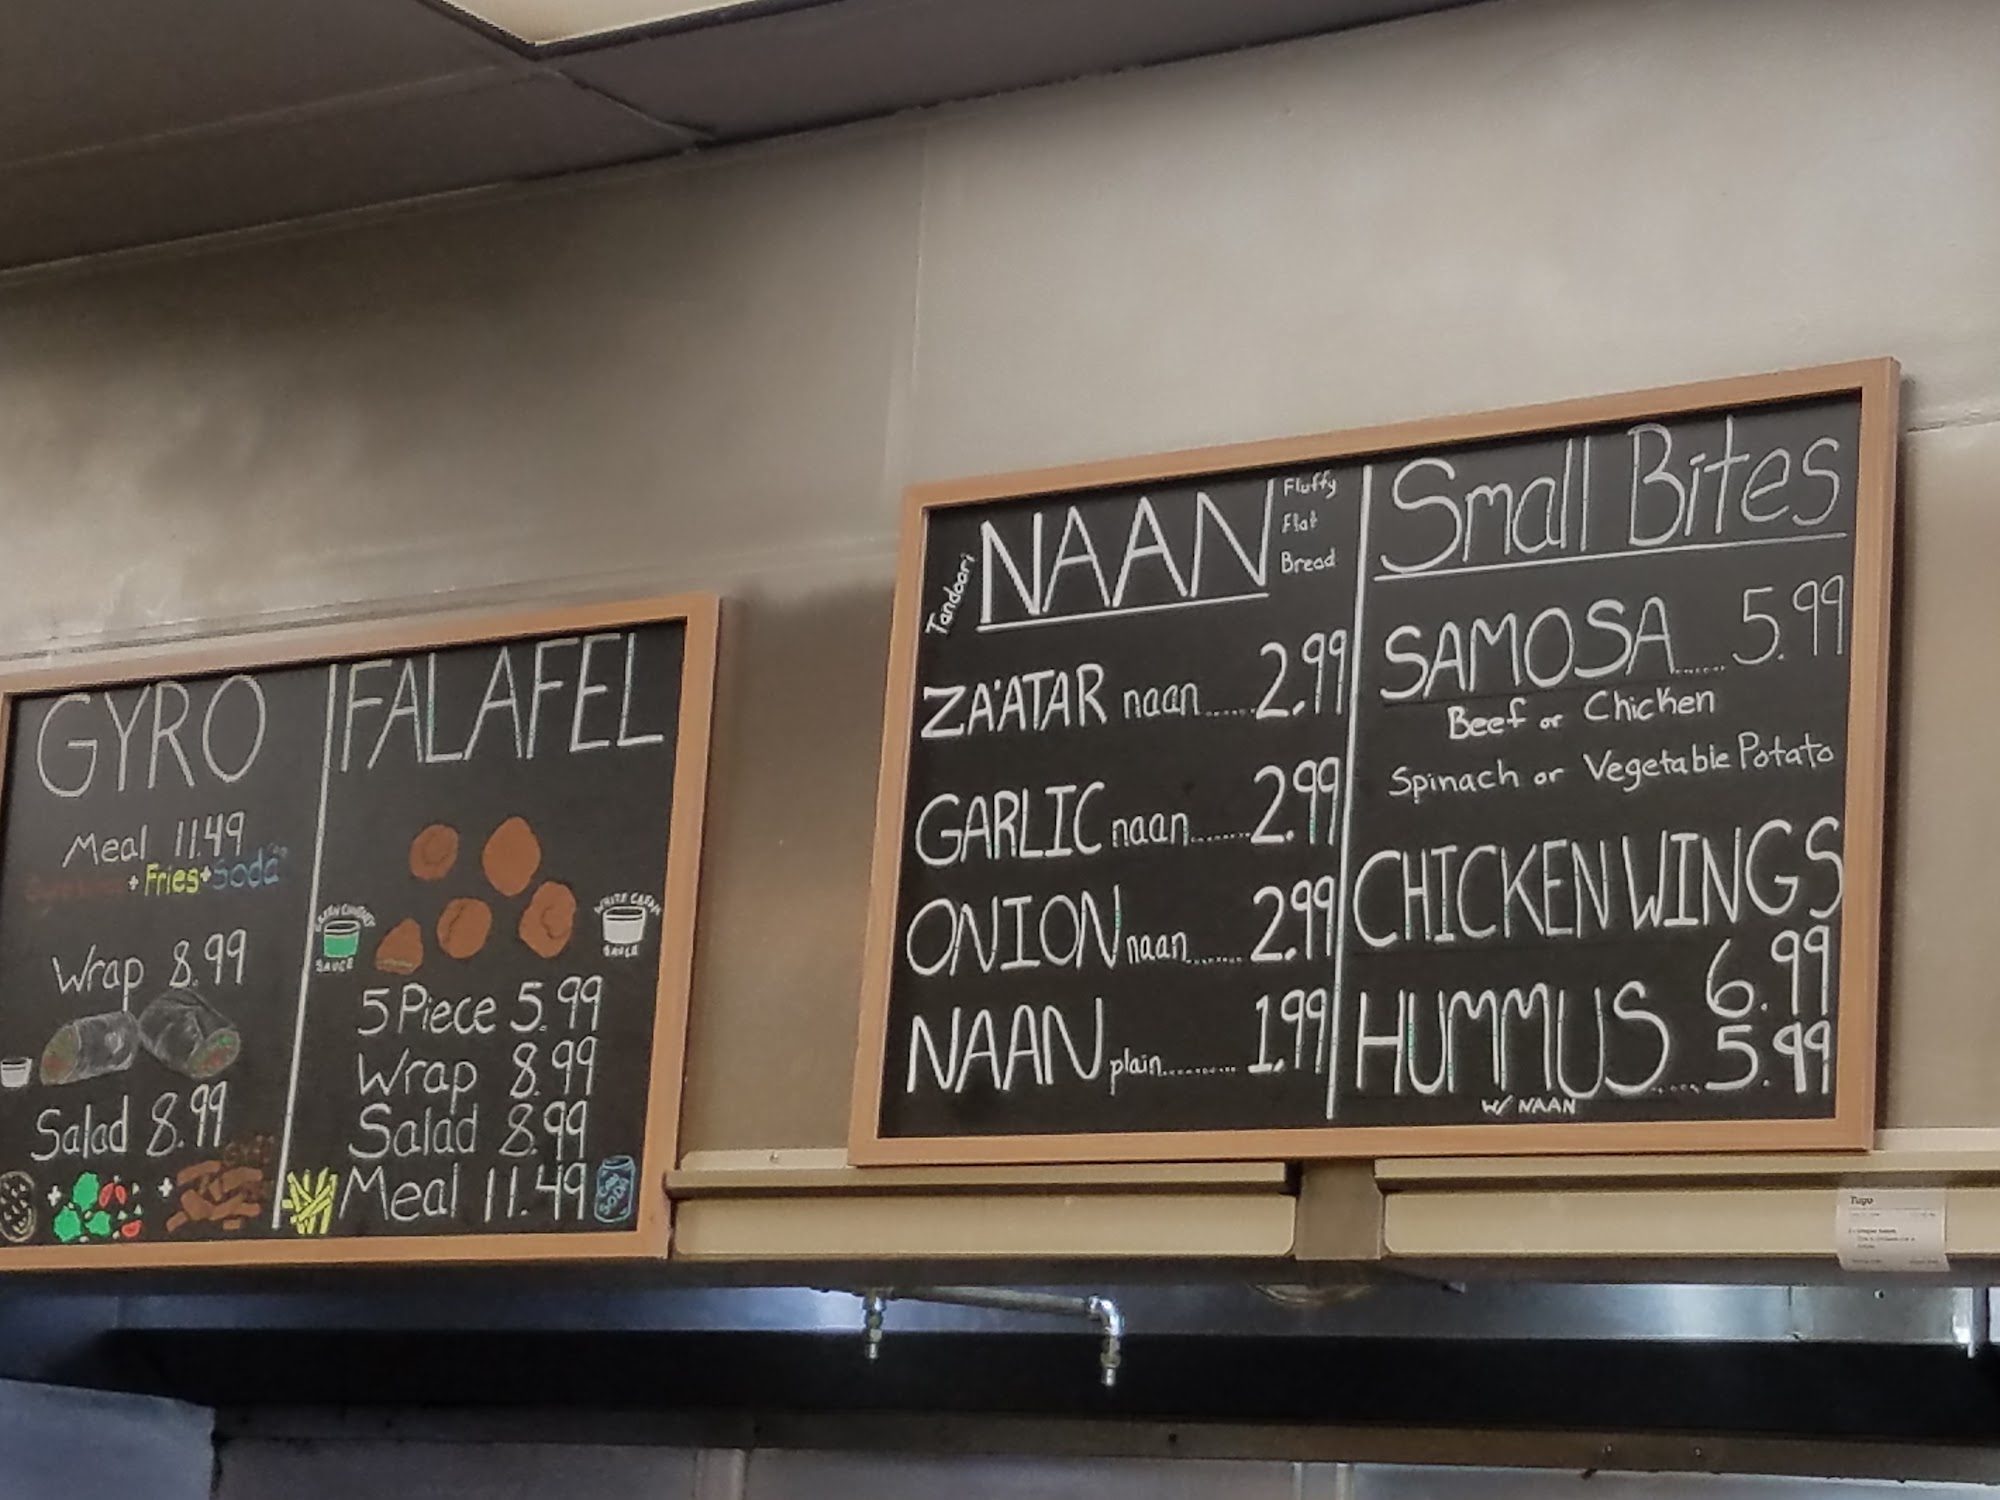 GYRO
Meal 11.49
+ Fries + Soda
Wrap 8.99
Salad 8.99
FALAFEL
GREEN CHUTNEY
SAUCE
WHITE CREAM
SAUCE
5 Piece 5.99
Wrap 8.99
Salad 8.99
Meal 11.49
Tandoori
NAAN
Fluffy
Flat
Bread
ZA'ATAR naan......2.99
GARLIC naan.......2.99
ONION naan.......2.99
NAAN plain..........1.99
Small Bites
SAMOSA......5.99
Beef or Chicken
Spinach or Vegetable Potato
CHICKEN WINGS
6.99
HUMMUS....5.99
W/ NAAN
Tugo